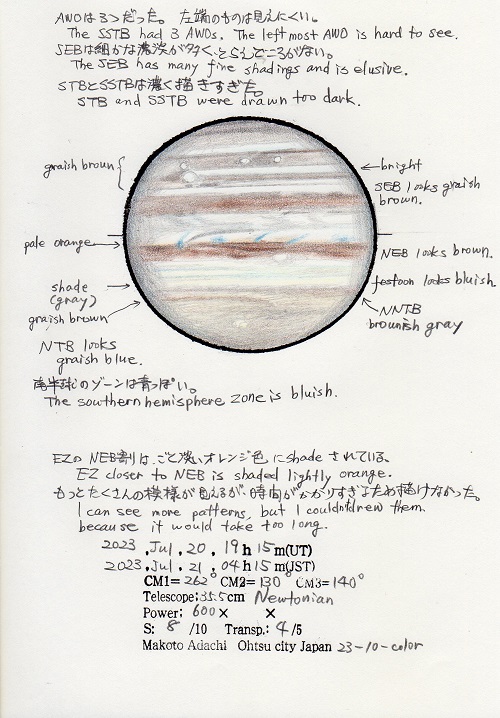 AWOは3つだった。左端のものは見えにくい。
The SSTB had 3 AWOs. The left most AWO is hard to see.
SEBは細かな濃淡が多く、とらえどころがない。
The SEB has many fine shadings and is elusive.
STBとSSTBは濃く描きすぎた。
STB and SSTB were drawn too dark.
graish broun
bright
SEB looks graish
brown.
pale orange
NEB looks brown.
shade
(gray)
festoon looks bluish.
graish brown
NNTB
brounish gray
NTB looks
graish blue.
南半球のゾーンは青っぽい。
The southern hemisphere zone is bluish.
EZの NEB割は、ごく淡いオレンジ色 にshade されている。
EZ closer to NEB is shaded lightly orange.
もっとたくさんの模様が見えるが、時間がかかりすぎるため描けなかった。
I can see more patterns, but I couldn't drew them.
because it would take too long.
2023 .Jul . 20 . 19 h 15 m(UT)
2023 .Jul . 21 . 04 h 15 m(JST)
CM1= 262° CM2= 130° CM3= 140°
Telescope: 35.5 cm Newtonian
Power: 600 × ×
S: 8 /10 Transp.: 4 /5
Makoto Adachi Ohtsu city Japan 23-10-color